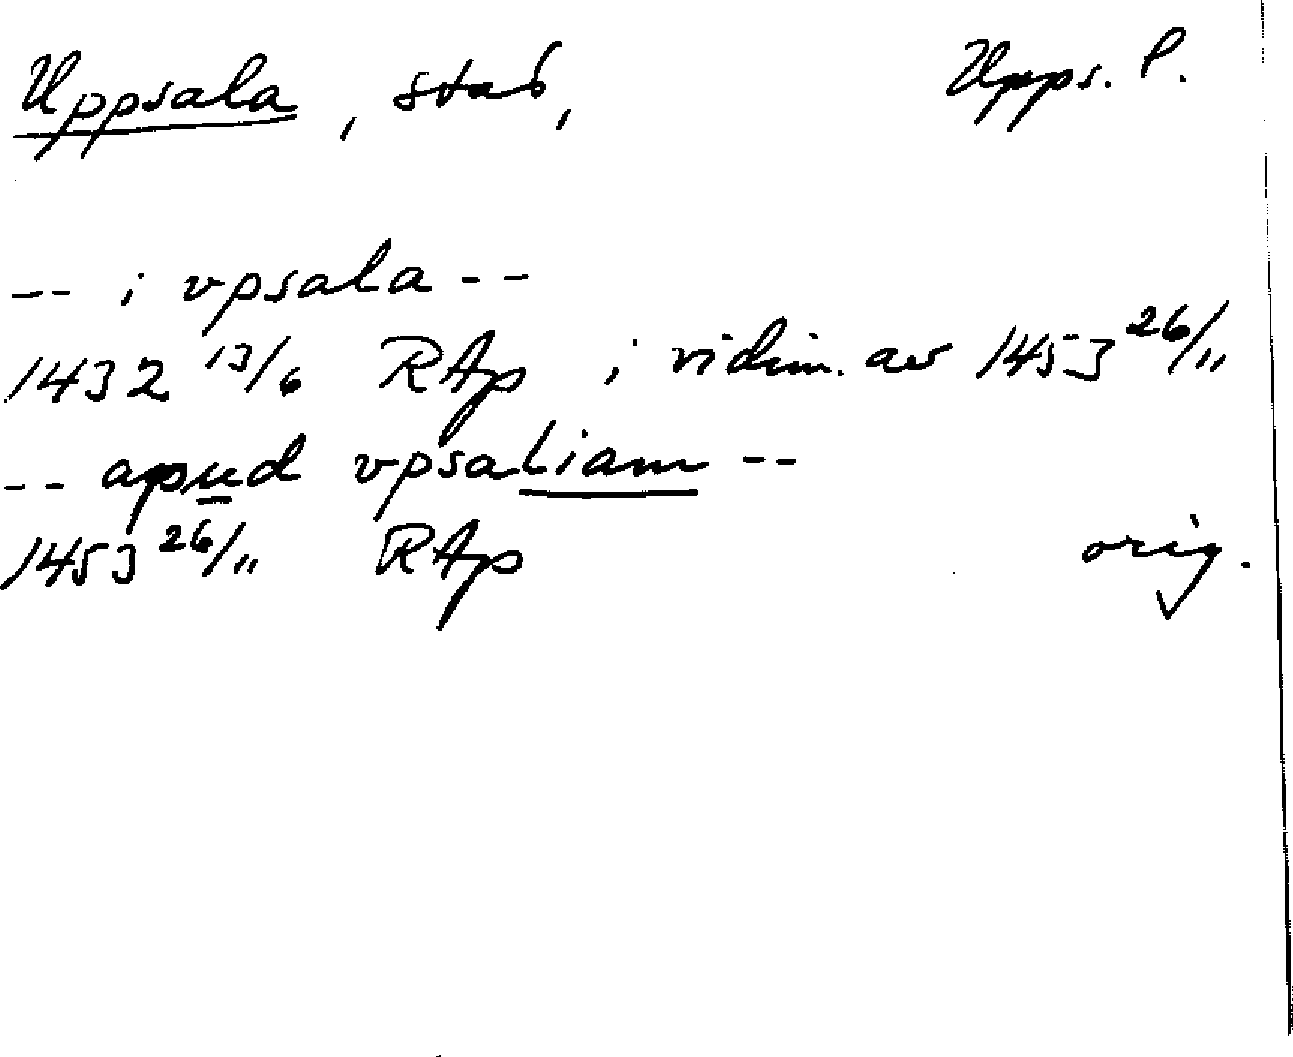 Uppsala, stad, Upps. l.
-- i vpsala --
1432 13/6 RAp i vidim. av 1453 26/11
-- apud vpsaliam --
1453 26/11 RAp orig.